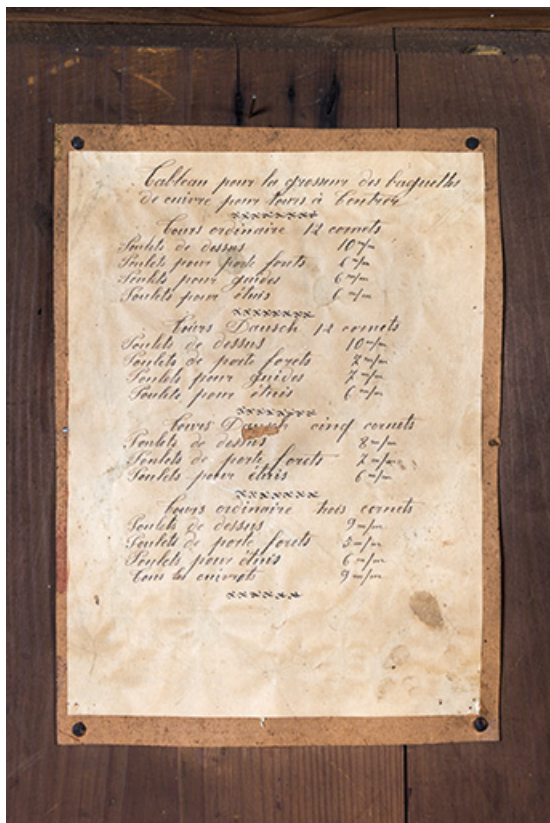 Tableau pour la grosseur des baguettes
de cuivre pour tours à Centrer
Tours ordinaire 12 cornets
Poulets de dessus 10 m/m
Poulets pour porte forets 6 m/m
Poulets pour guides 6 m/m
Poulets pour étuis 6 m/m
Tours Dausch 12 cornets
Poulets de dessus 10 m/m
Poulets de porte forets 7 m/m
Poulets pour guides 7 m/m
Poulets pour étuis 6 m/m
Tours cinq cornets
Poulets de dessus 8 m/m
Poulets de porte forets 7 m/m
Poulets pour étuis 6 m/m
Tours ordinaire trois cornets
Poulets de dessus 9 m/m
Poulets de porte forets 5 m/m
Poulets pour étuis 6 m/m
Tous les cuivrots 9 m/m